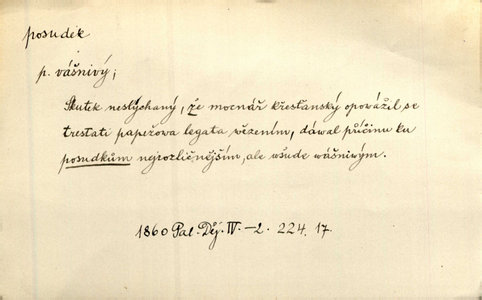 posudek
p. vášnivý;
Skutek neslýchaný, že mocnář křesťanský opovážil se
trestati papežowa legata wězením, dáwal příčinu ku
posudkům nejrozličnějším, ale wšude wášniwým.
1860 Pal. Děj. IV.-2. 224. 17.